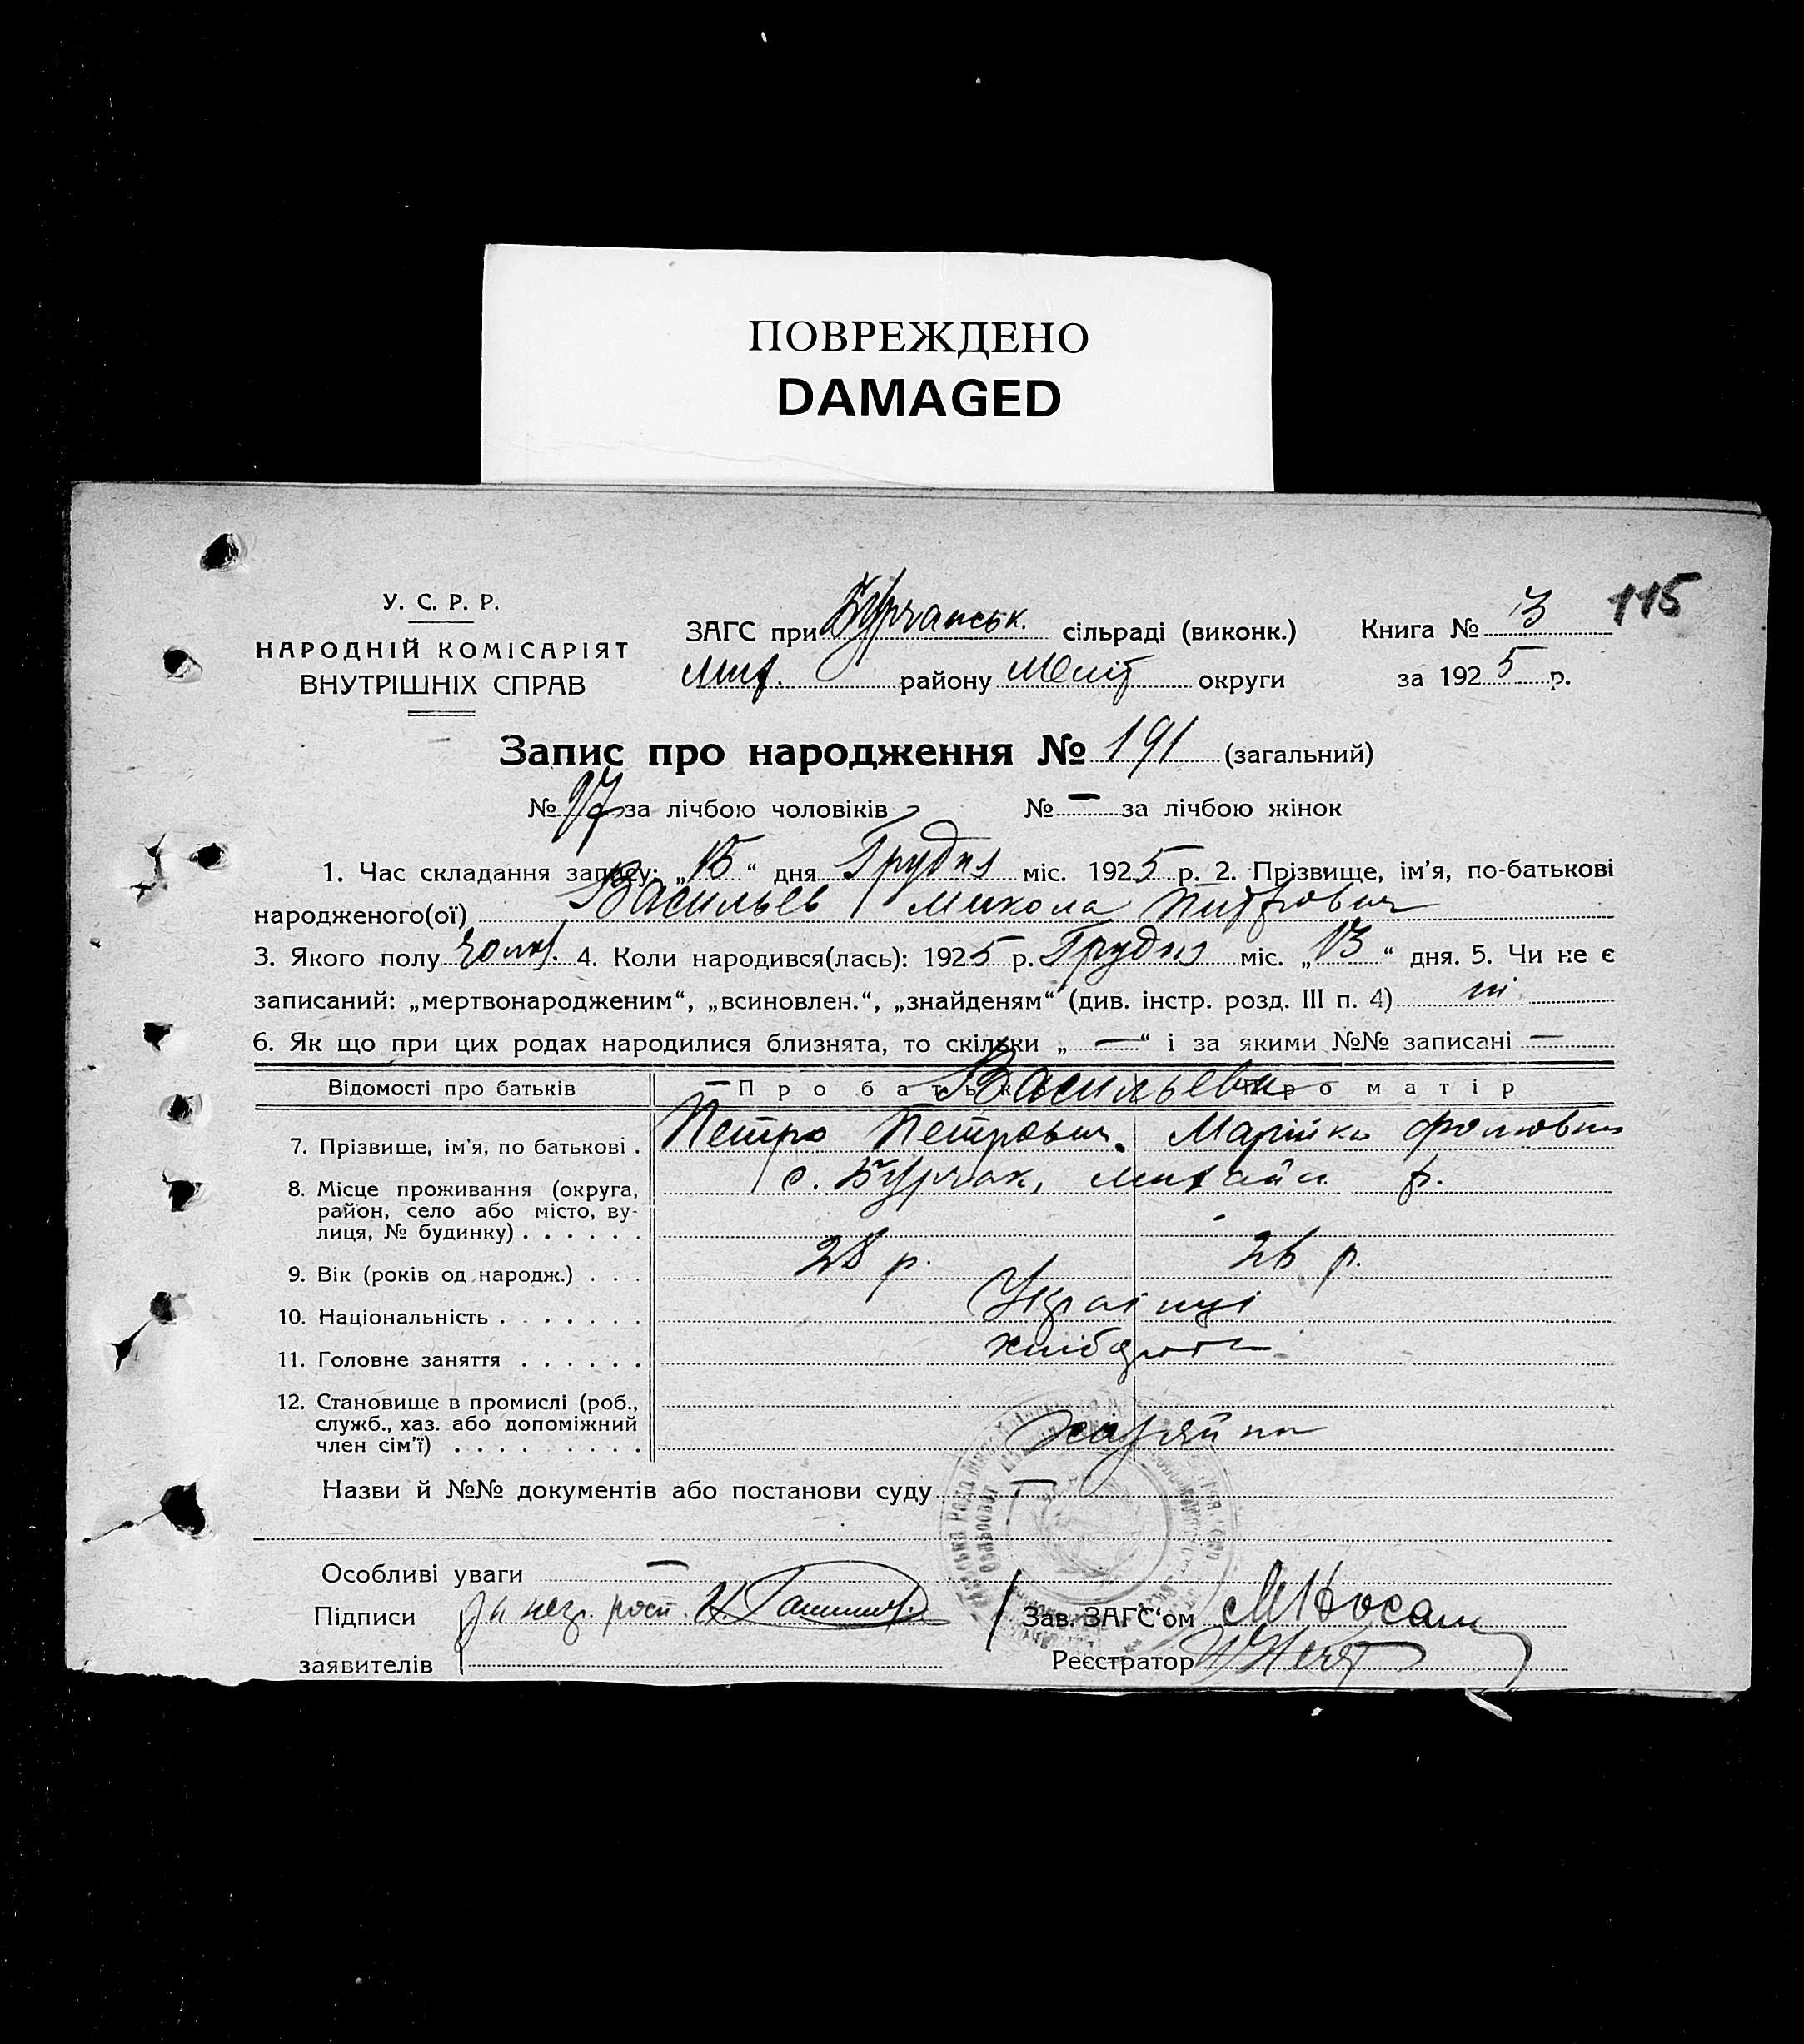 ПОВРЕЖДЕНО
DAMAGED
115
У. С. Р. Р.
НАРОДНІЙ КОМІСАРІЯТ
ВНУТРІШНІХ СПРАВ
ЗАГС при Бурчанськ. сільраді (виконк.) Книга № 3
Мих. району Меліт округи за 1925 р.
Запис про народження № 191 (загальний)
№ 97 за лічбою чоловіків № — за лічбою жінок
1. Час складання запису: „15“ дня Грудня міс. 1925 р. 2. Прізвище, ім'я, по-батькові
народженого(ої) Васильєв Микола Питрович
3. Якого полу чолов. 4. Коли народився(лась): 1925 р. Грудня міс. „13“ дня. 5. Чи не є
записаний: „мертвонародженим“, „всиновлен.“, „знайденям“ (див. інстр. розд. III п. 4) ні
6. Як що при цих родах народилися близнята, то скільки „ — “ і за якими №№ записані —
Відомості про батьків Про батька Про матір
Васильеви
7. Прізвище, ім'я, по батькові . Петро Петрович. Марійка
8. Місце проживання (округа, с. Бурчак, Михайл. р.
район, село або місто, ву-
лиця, № будинку) . . . . . .
9. Вік (років од народж.) . . . 28 р. 26 р.
10. Національність . . . . . . . Українці
11. Головне заняття . . . . . . хлібороби
12. Становище в промислі (роб.,
служб., хаз. або допоміжний
член сім'ї) . . . . . . . . . хазяйни
Назви й №№ документів або постанови суду —
Особливі уваги —
Підписи за нез. росп.
Зав. ЗАГС'ом М Носач
заявителів
Реєстратор